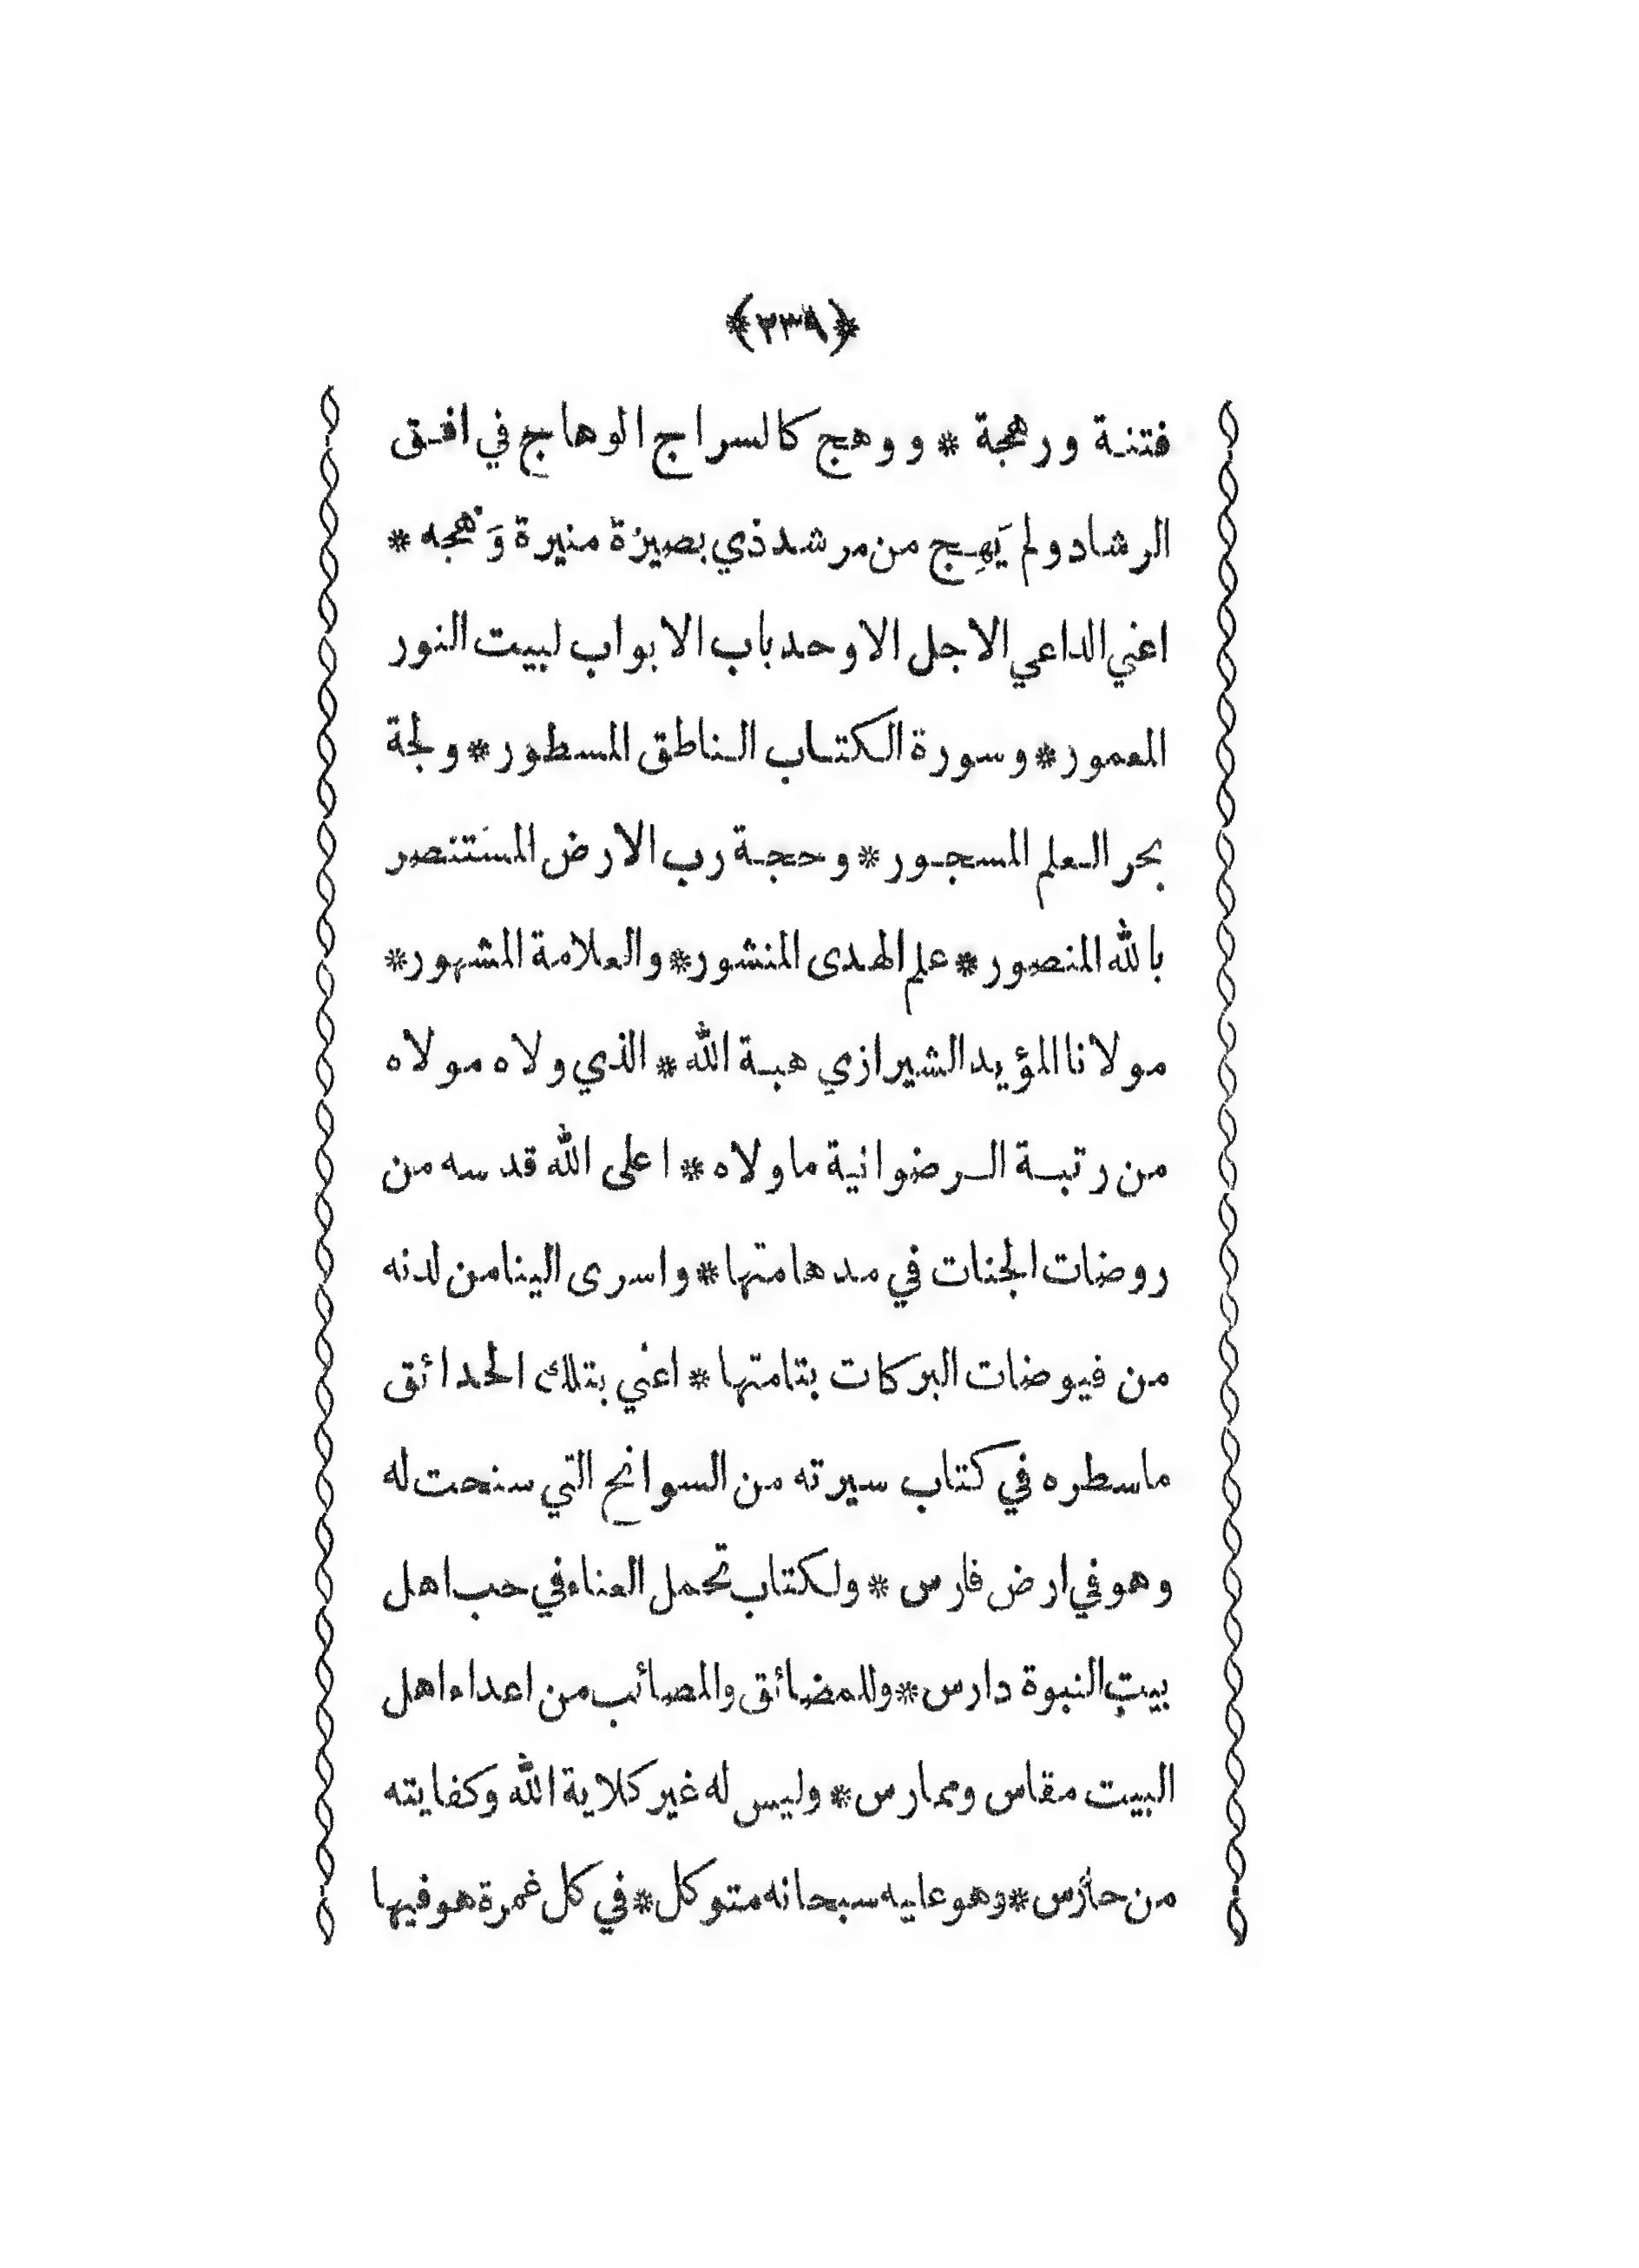 ﴿*٢٣٩*﴾
فتنة ورهجة * ووهج كالسراج الوهاج في افق
الرشاد ولم يَهِج من مرشد ذي بصيرة منيرة وَنهجه *
اعني الداعي الاجل الاوحد باب الابواب لبيت النور
المعمور * وسورة الكتاب الناطق المسطور * ولجة
بحر العلم المسجور * وحجة رب الارض المستنصر
بالله المنصور * علم الهدى المنشور * والعلامة المشهور *
مولانا المؤيد الشيرازي هبة الله * الذي ولاه مولاه
من رتبة الرضوانية ماولاه * اعلى الله قدسه من
روضات الجنات في مدهامتها * واسرى الينا من لدنه
من فيوضات البركات بتامتها * اعني بتلك الحدائق
ماسطره في كتاب سيرته من السوانح التي سنحت له
وهو في ارض فارس * ولكتاب تحمل العناء في حب اهل
بيت النبوة دارس * وللمضائق والمصائب من اعداء اهل
البيت مقاس وممارس * وليس له غير كلاية الله وكفايته
من حارس * وهو عليه سبحانه متوكل * في كل غمرة هو فيها